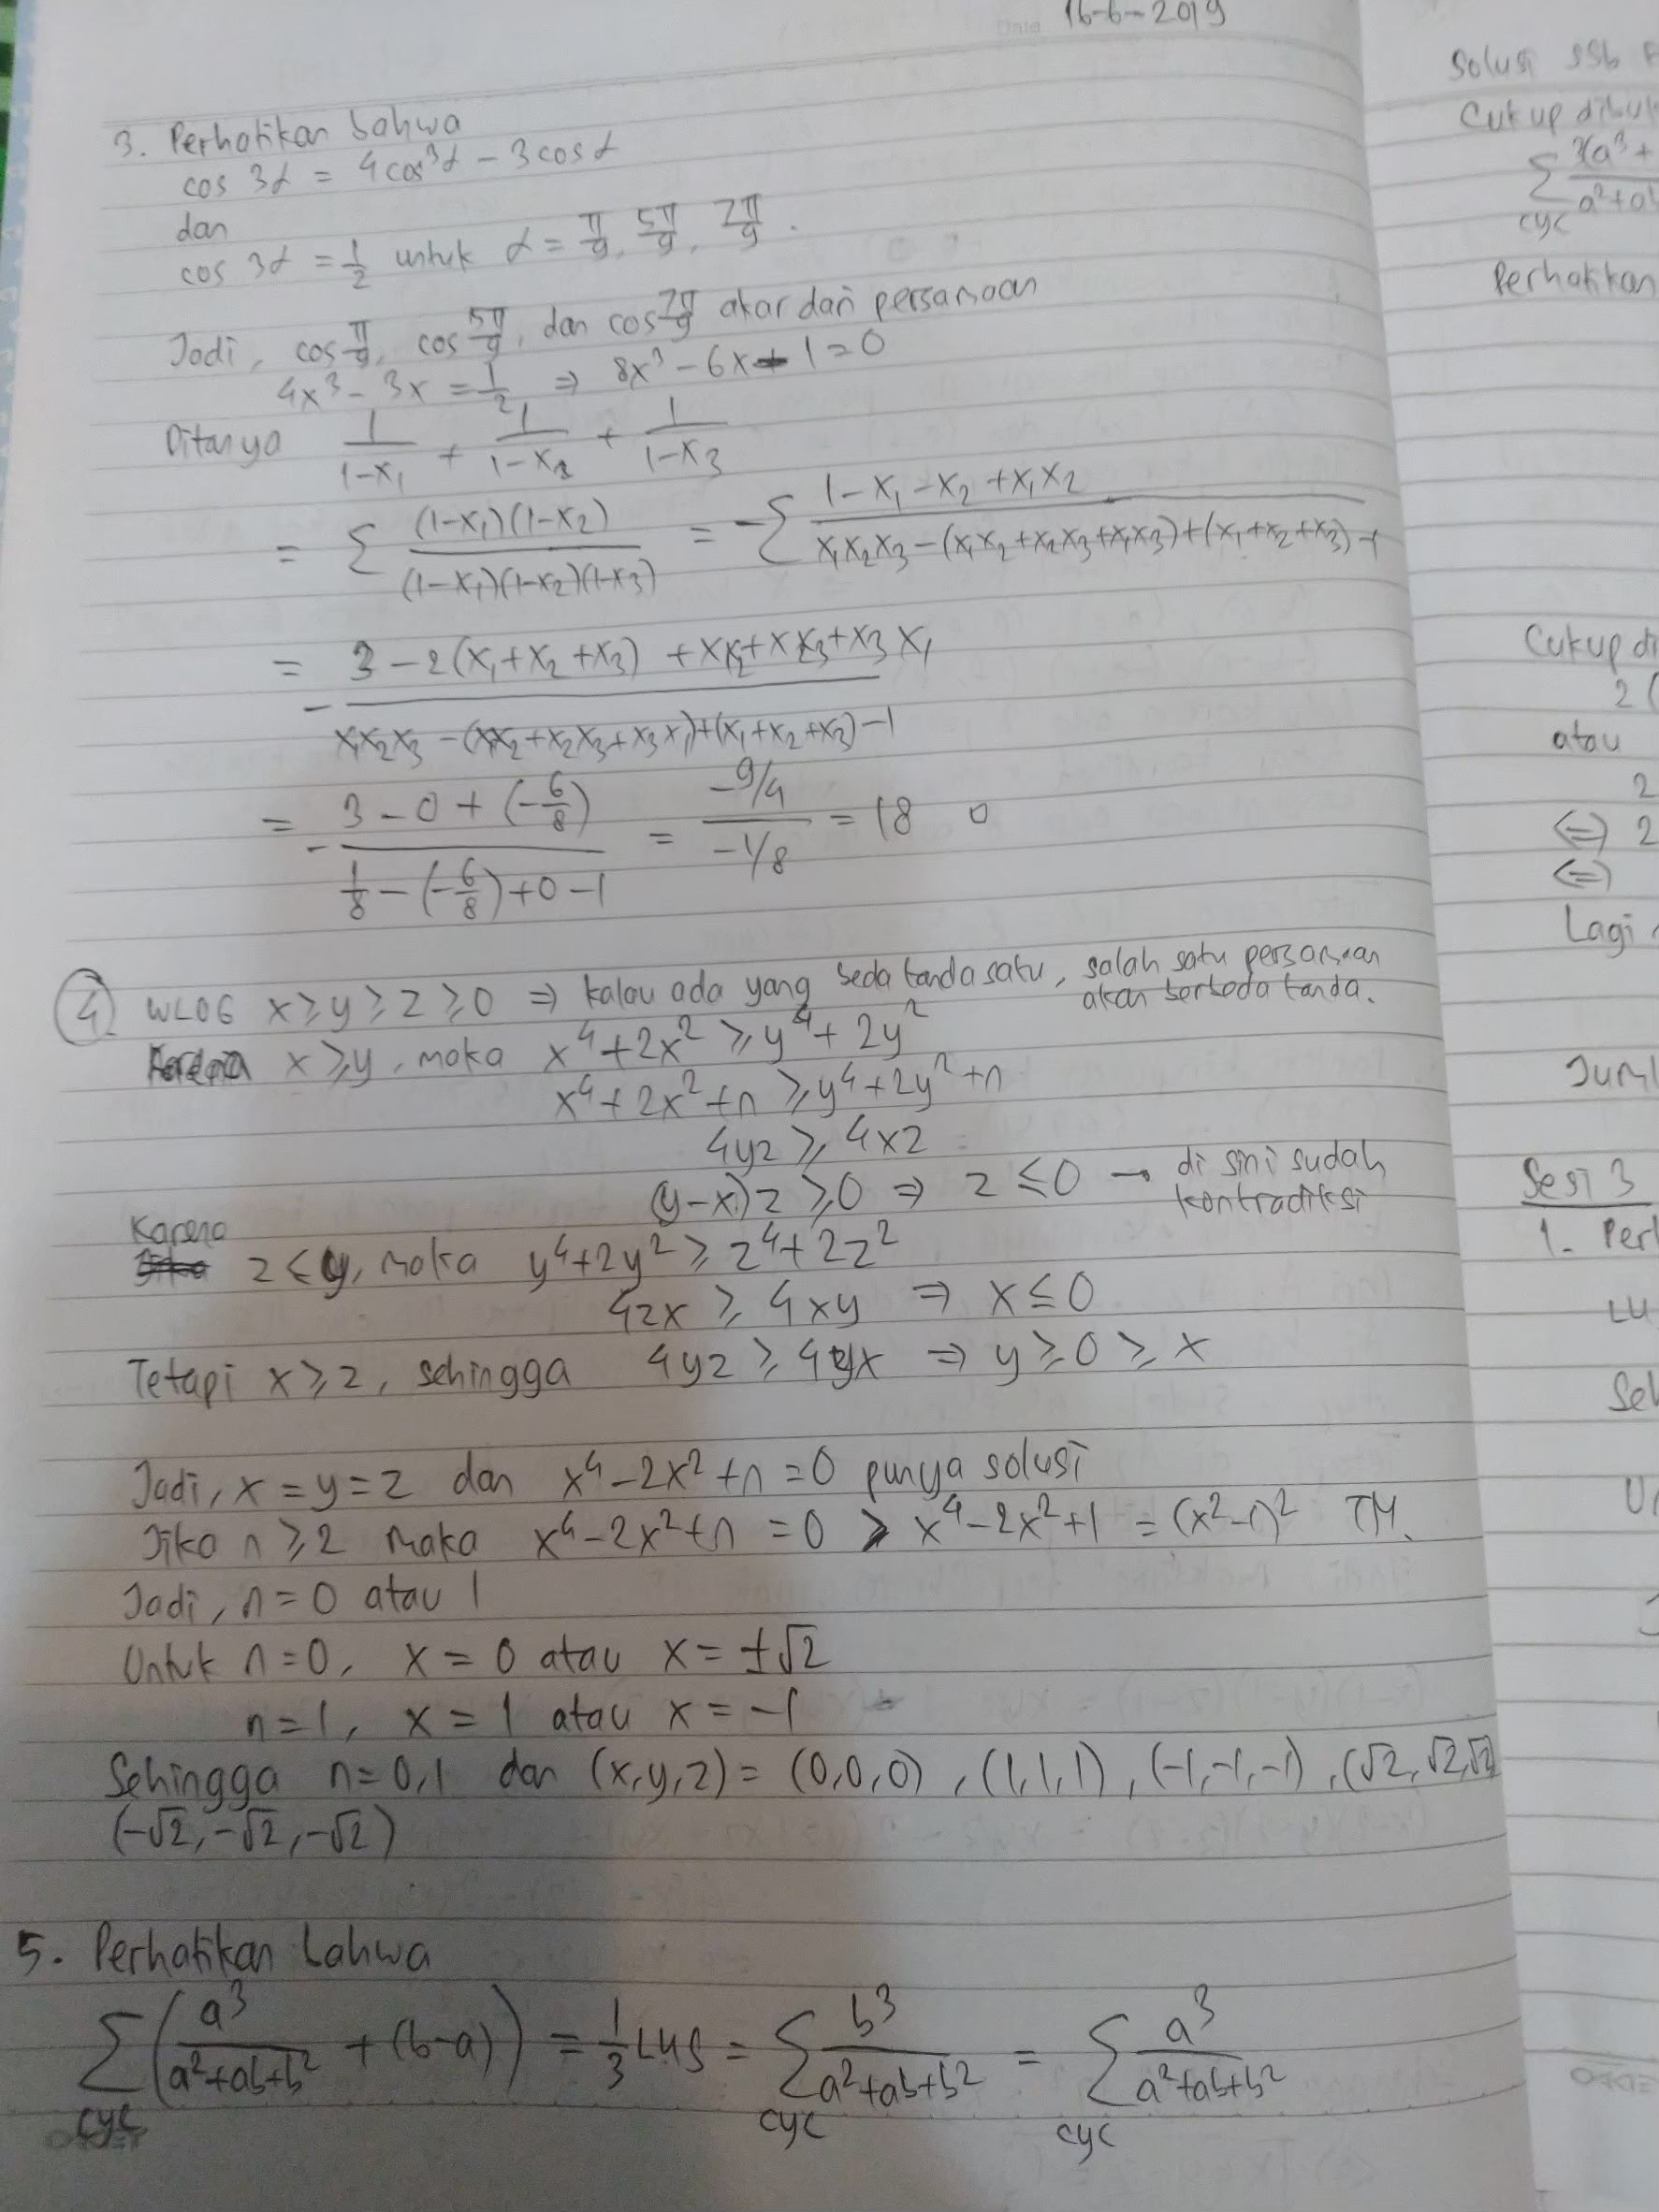 16-6-2019
3. Perhatikan bahwa
cos 3α = 4cos³α - 3cosα
dan
cos 3α = 1/2 untuk α = π/9, 5π/9, 7π/9.
Jadi, cos π/9, cos 5π/9, dan cos 7π/9 akar dari persamaan
4x³ - 3x = 1/2 ⇒ 8x³ - 6x - 1 = 0
Ditanya 1/(1-x₁) + 1/(1-x₂) + 1/(1-x₃)
= Σ (1-x₁)(1-x₂) / (1-x₁)(1-x₂)(1-x₃) = -Σ (1-x₁-x₂+x₁x₂) / (x₁x₂x₃-(x₁x₂+x₂x₃+x₁x₃)+(x₁+x₂+x₃)-1)
= - (3-2(x₁+x₂+x₃)+x₁x₂+x₂x₃+x₃x₁) / (x₁x₂x₃-(x₁x₂+x₂x₃+x₃x₁)+(x₁+x₂+x₃)-1)
= - (3-0+(-6/8)) / (1/8-(-6/8)+0-1) = (-9/4) / (-1/8) = 18
4. WLOG x ≥ y ≥ z ≥ 0 ⇒ kalau ada yang beda tanda satu, salah satu persamaan
akan berbeda tanda.
Karena x ≥ y, maka x⁴+2x² ≥ y⁴+2y²
x⁴+2x²+n ≥ y⁴+2y²+n
4yz ≥ 4xz
(y-x)z ≥ 0 ⇒ z ≤ 0 → di sini sudah
kontradiksi
Karena
z ≤ y, maka y⁴+2y² ≥ z⁴+2z²
4zx ≥ 4xy ⇒ x ≤ 0
Tetapi x ≥ z, sehingga 4yz ≥ 4yx ⇒ y ≥ 0 ≥ x
Jadi, x = y = z dan x⁴-2x²+n = 0 punya solusi
Jika n ≥ 2 maka x⁴-2x²+n = 0 > x⁴-2x²+1 = (x²-1)² TM.
Jadi, n = 0 atau 1
Untuk n = 0, x = 0 atau x = ±√2
n = 1, x = 1 atau x = -1
Sehingga n = 0,1 dan (x,y,z) = (0,0,0), (1,1,1), (-1,-1,-1), (√2,√2,√2)
(-√2,-√2,-√2)
5. Perhatikan bahwa
Σcyc (a³/(a²+ab+b²) + (b-a)) = 1/3 LHS = Σcyc b³/(a²+ab+b²) = Σcyc a³/(a²+ab+b²)
Solusi SSb
Cukup
Σcyc
Perhatikan
Cukup
2(
atau
2
⇔ 2
⇔
Lagi
Juml
Sesi 3
1. Per
LU
Seh